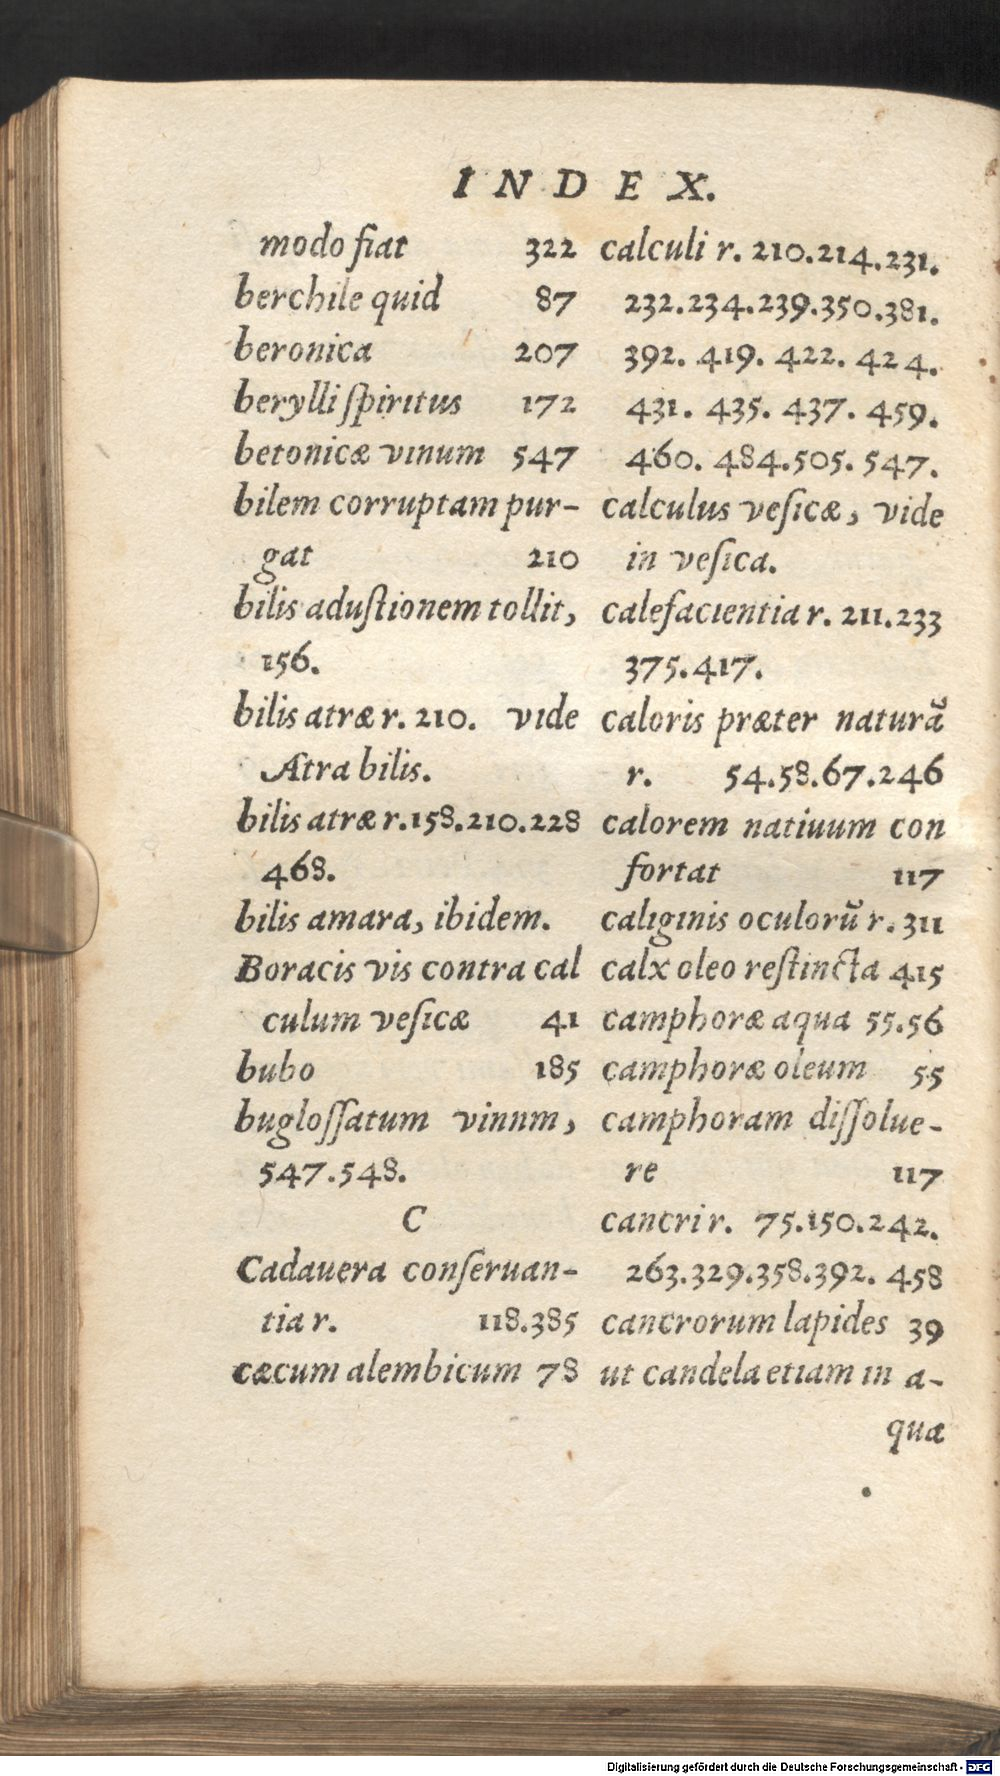 INDEX.
modo fiat 322
berchile quid 87
beronica 207
berylli ſpiritus 172
betonicæ vinum 547
bilem corruptam pur-
gat 210
bilis aduſtionem tollit,
156.
bilis atræ r. 210. vide
Atra bilis.
bilis atræ r. 158.210.228
468.
bilis amara, ibidem.
Boracis vis contra cal
culum veſicæ 41
bubo 185
bugloſſatum vinnm,
547.548.
C
Cadauera conſeruan-
tia r. 118.385
cæcum alembicum 78
calculi r. 210.214.231.
232.234.239.350.381.
392. 419. 422. 424.
431. 435. 437. 459.
460. 484.505. 547.
calculus veſicæ, vide
in veſica.
calefacientia r. 211.233
375.417.
caloris præter naturã
r. 54.58.67.246
calorem natiuum con
fortat 117
caliginis oculorũ r. 311
calx oleo reſtincta 415
camphoræ aqua 55.56
camphoræ oleum 55
camphoram diſſolue-
re 117
cancri r. 75.150.242.
263.329.358.392. 458
cancrorum lapides 39
ut candela etiam in a-
qua
Digitalisierung gefördert durch die Deutsche Forschungsgemeinschaft - DFG